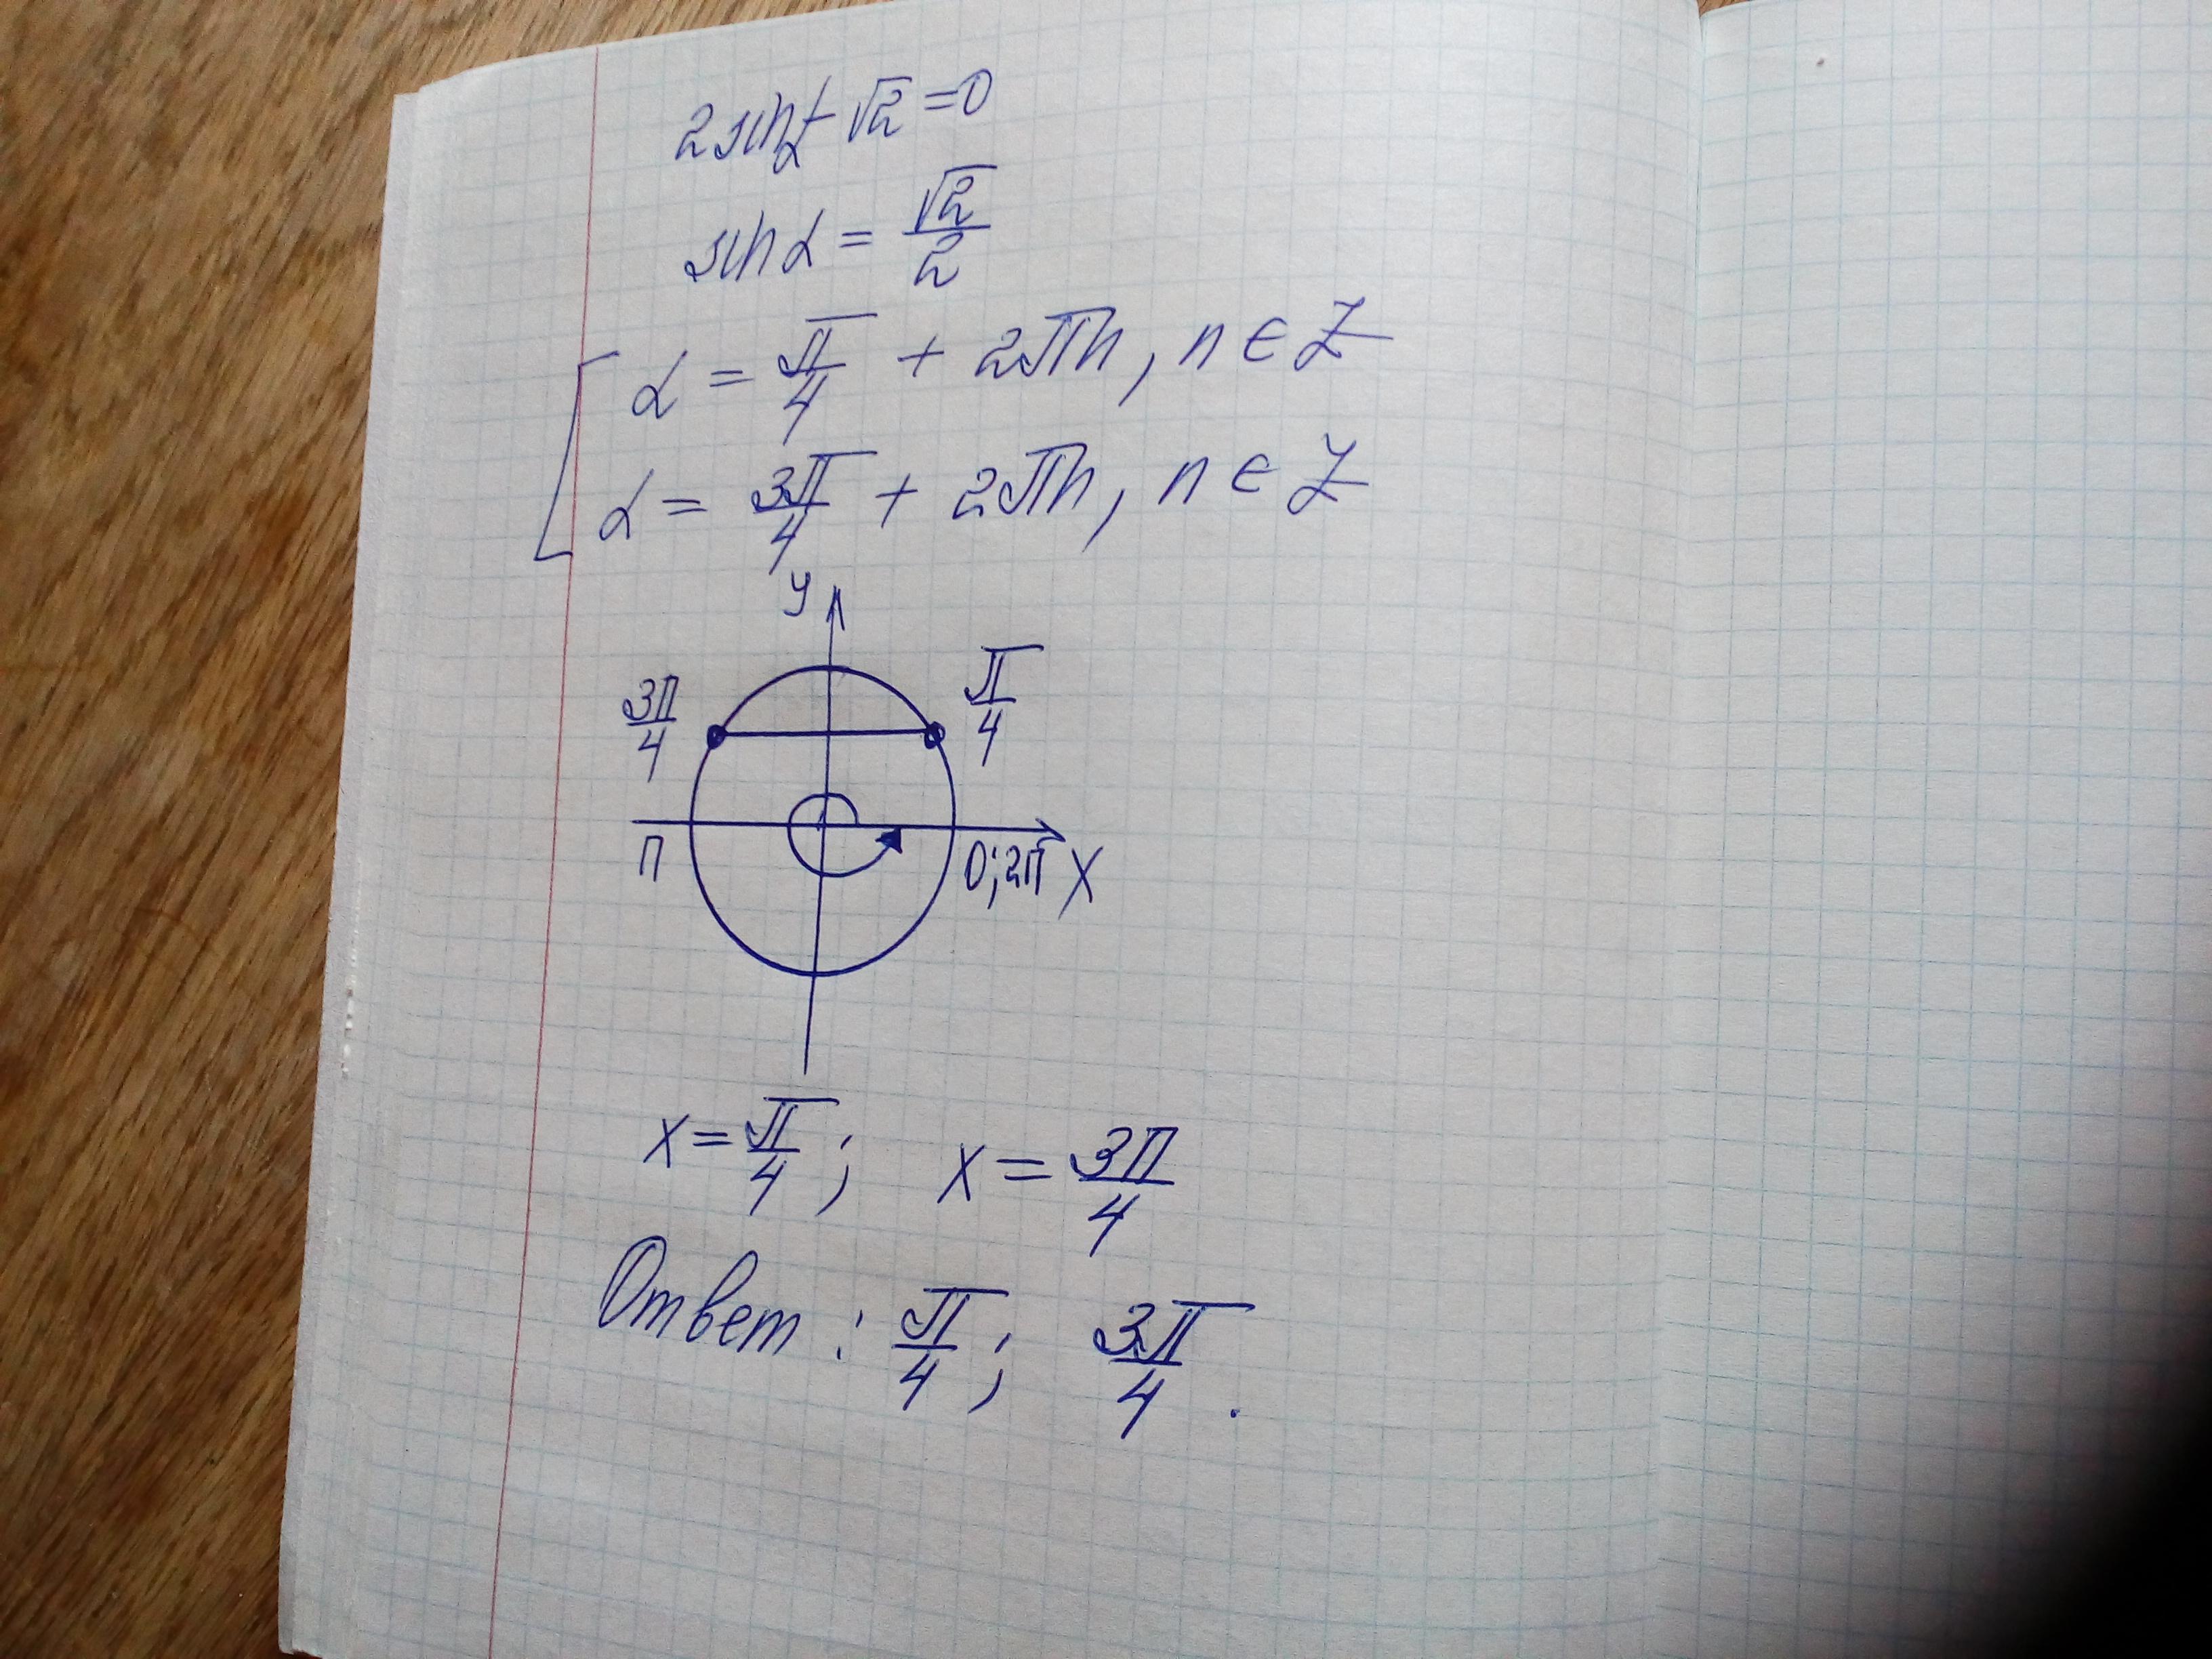 2sinα-√2=0
sinα=√2/2
α=π/4+2πn, n∈Z
α=3π/4+2πn, n∈Z
y
3π/4 π/4
π 0;2π x
x=π/4; x=3π/4
Ответ: π/4; 3π/4.